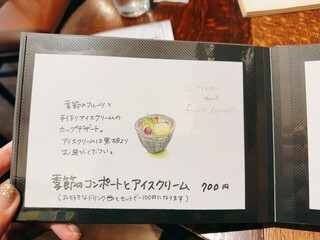 季節のフルーツと
手作りアイスクリームの
カップデザート。
アイスクリームは黒板より
お選びください。
ice cream
and
fruit compote
季節のコンポートとアイスクリーム 700円
(お好きなドリンクとセットで-100円になります)